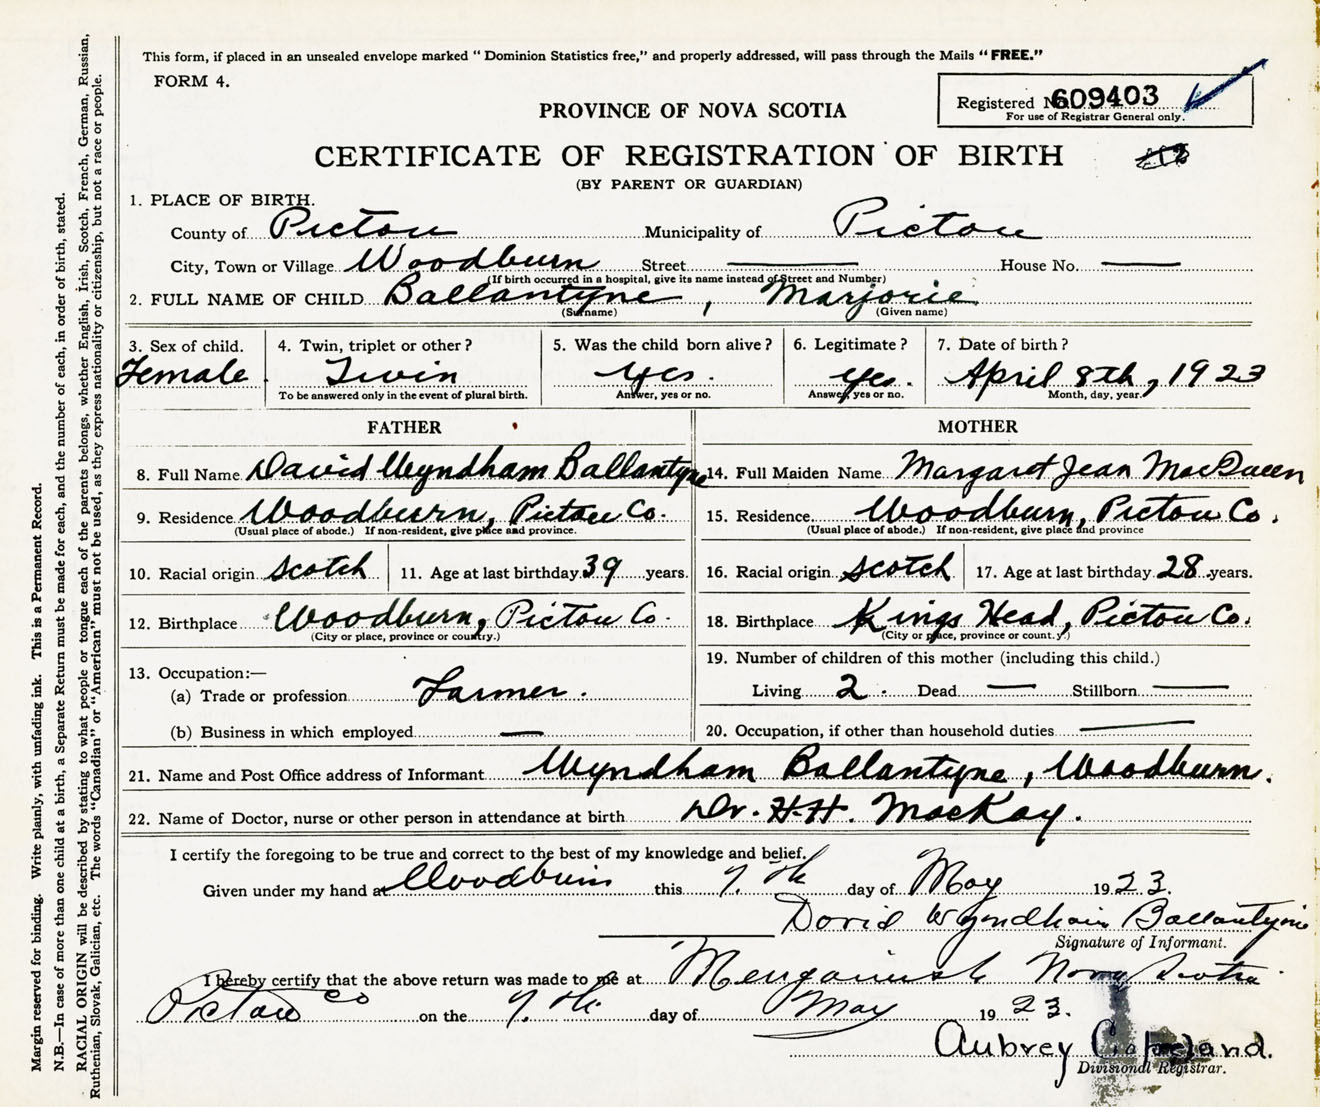 This form, if placed in an unsealed envelope marked “ Dominion Statistics free,” and properly addressed, will pass through the Mails “ FREE.”
FORM 4.
Registered No. 609403
For use of Registrar General only.
PROVINCE OF NOVA SCOTIA
CERTIFICATE OF REGISTRATION OF BIRTH
(BY PARENT OR GUARDIAN)
1. PLACE OF BIRTH.
County of Pictou Municipality of Pictou
City, Town or Village Woodburn Street — House No. —
(If birth occurred in a hospital, give its name instead of Street and Number)
2. FULL NAME OF CHILD Ballantyne , Marjorie
(Surname) (Given name)
3. Sex of child. 4. Twin, triplet or other ? 5. Was the child born alive ? 6. Legitimate ? 7. Date of birth ?
Female. Twin yes. yes. April 8th, 1923
To be answered only in the event of plural birth. Answer, yes or no. Answer, yes or no. Month, day, year.
FATHER MOTHER
8. Full Name David Wyndham Ballantyne 14. Full Maiden Name Margaret Jean MacQueen
9. Residence Woodburn, Pictou Co. 15. Residence Woodburn, Pictou Co.
(Usual place of abode.) If non-resident, give place and province. (Usual place of abode.) If non-resident, give place and province
10. Racial origin Scotch 11. Age at last birthday 39 years. 16. Racial origin Scotch 17. Age at last birthday 28 years.
12. Birthplace Woodburn, Pictou Co. 18. Birthplace Kings Head, Pictou Co.
(City or place, province or country.) (City or place, province or count.y.)
13. Occupation:— 19. Number of children of this mother (including this child.)
(a) Trade or profession Farmer. Living 2. Dead — Stillborn —
(b) Business in which employed — 20. Occupation, if other than household duties —
21. Name and Post Office address of Informant Wyndham Ballantyne, Woodburn.
22. Name of Doctor, nurse or other person in attendance at birth Dr. H.H. MacKay.
I certify the foregoing to be true and correct to the best of my knowledge and belief.
Given under my hand at Woodburn this 7. th day of May 1923.
David Wyndham Ballantyne
Signature of Informant.
I hereby certify that the above return was made to me at Nova Scotia
Pictou Co on the 7. th day of May 1923.
Aubrey
Divisional Registrar.
Margin reserved for binding. Write plainly, with unfading ink. This is a Permanent Record.
N.B.—In case of more than one child at a birth, a Separate Return must be made for each, and the number of each, in order of birth, stated.
RACIAL ORIGIN will be described by stating to what people or tongue each of the parents belongs, whether English, Irish, Scotch, French, German, Russian,
Ruthenian, Slovak, Galician, etc. The words “Canadian” or “American” must not be used, as they express nationality or citizenship, but not a race or people.